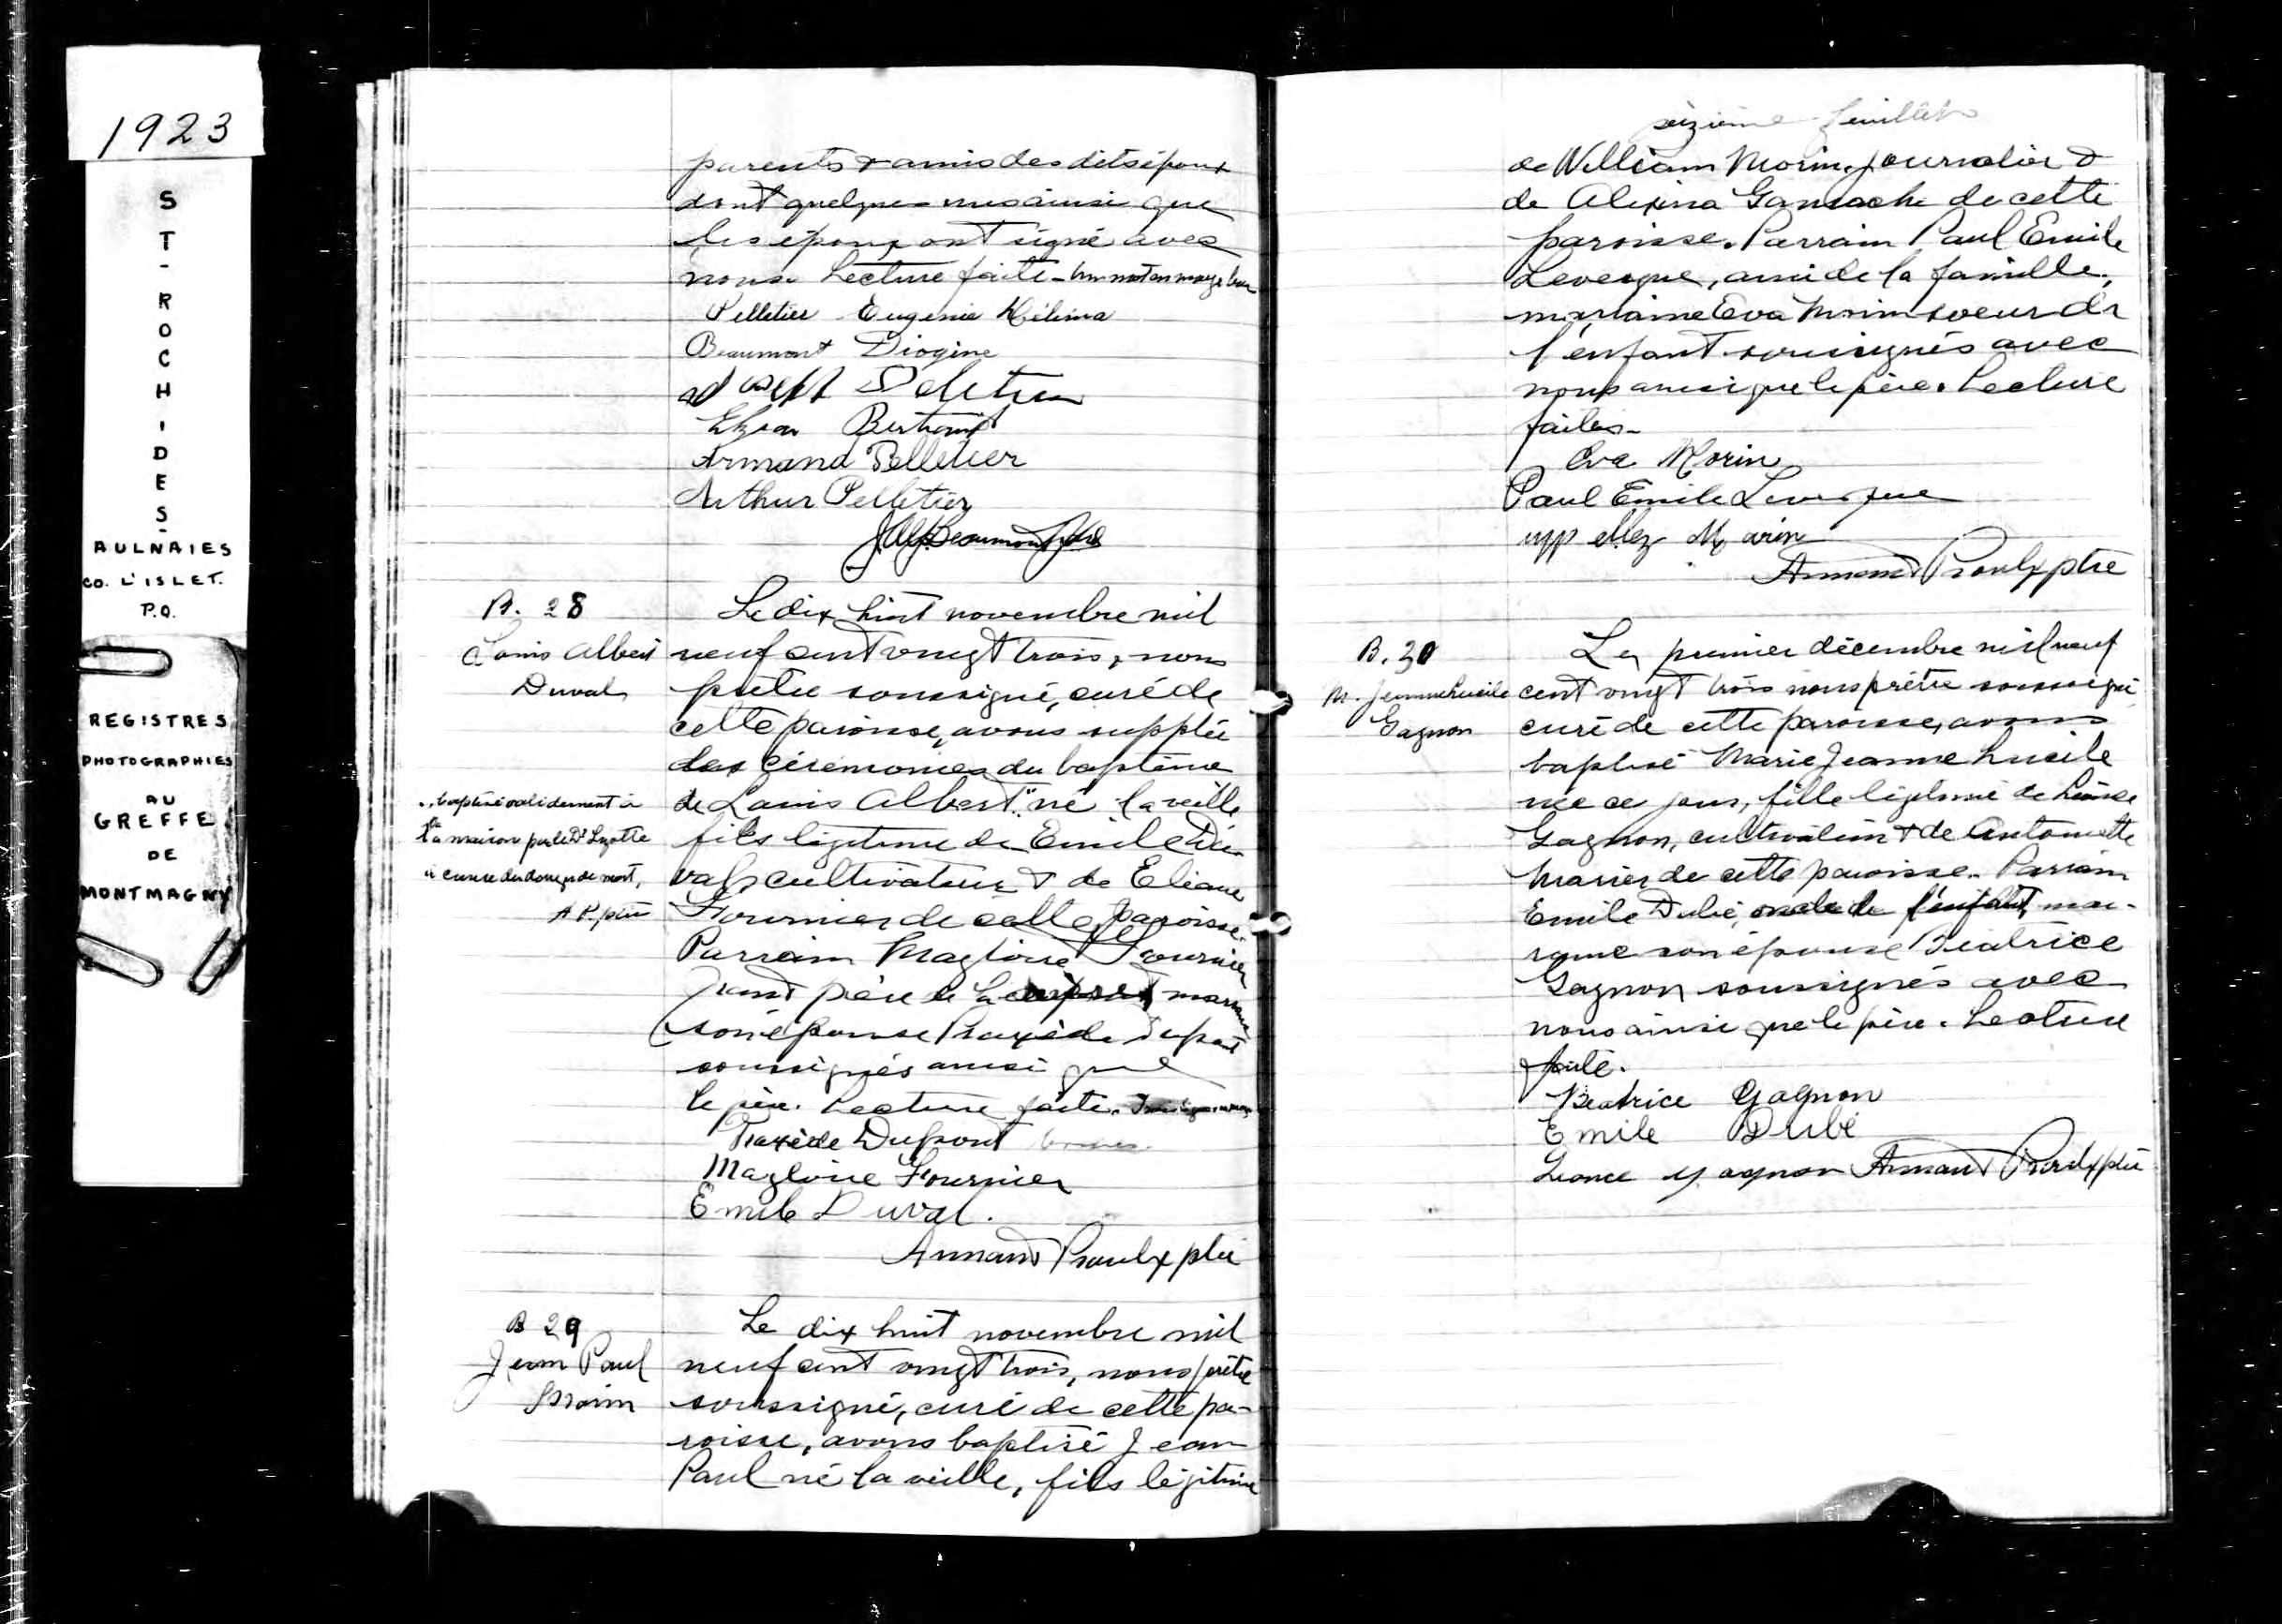 1923
S
T
-
R
O
C
H
-
D
E
S
-
AULNAIES
CO. L'ISLET.
P.Q.
REGISTRES
PHOTOGRAPHIES
AU
GREFFE
DE
MONTMAGNY
parents & amis des dits époux
dont quelques uns ainsi que
les époux ont signé avec
nous. Lecture faite - Un mot en marge bon
Pelletier Eugénie Mélina
Beaumont Diogène
Peletier
Bertrand
Armand Pelletier
Arthur Pelletier
Beaumont ptre
B. 28
Louis Albert
Duval
Le dix huit novembre mil
neuf cent vingt trois, nous
prêtre soussigné, curé de
cette paroisse, avons supplée
les cérémonies du baptême
de Louis Albert né la veille
..baptisé validement à
la maison par le Dr Lizotte
à cause du danger de mort,
A P. ptre
fils légitime de Emile Du-
val, cultivateur & de Eliane
Fournier de cette paroisse.
Parrain Magloire Fournier
grand père de marraine
son épouse Praxède Dupont
soussignés ainsi que
le père. Lecture faite.
Praxède Dupont
Magloire Fournier
Emile Duval.
Armand Proulx ptre
B 29
Jean Paul
Morin
Le dix huit novembre mil
neuf cent vingt trois, nous prêtre
soussigné, curé de cette pa-
roisse, avons baptisé Jean
Paul né la veille, fils légitime
seizième feuillet
de William Morin, journalier &
de Alexina Gamache de cette
paroisse. Parrain Paul Emile
Levesque, ami de la famille,
marraine Eva Morin soeur de
l'enfant soussignés avec
nous ainsi que le père. Lecture
faite.
Eva Morin
Paul Emile Levesque
Morin
Armand Proulx ptre
B. 30
M. Jeanne Lucile
Gagnon
Le premier décembre mil neuf
cent vingt trois nous prêtre soussigné
curé de cette paroisse, avons
baptisé Marie Jeanne Lucile
née ce jour, fille légitime de Léonce
Gagnon, cultivateur & de Antoinette
Marier de cette paroisse. Parrain
Emile Dubé, oncle de l'enfant, mar-
raine son épouse Béatrice
Gagnon soussignés avec
nous ainsi que le père. Lecture
faite.
Béatrice Gagnon
Emile Dubé
Léonce Gagnon Armand Proulx ptre